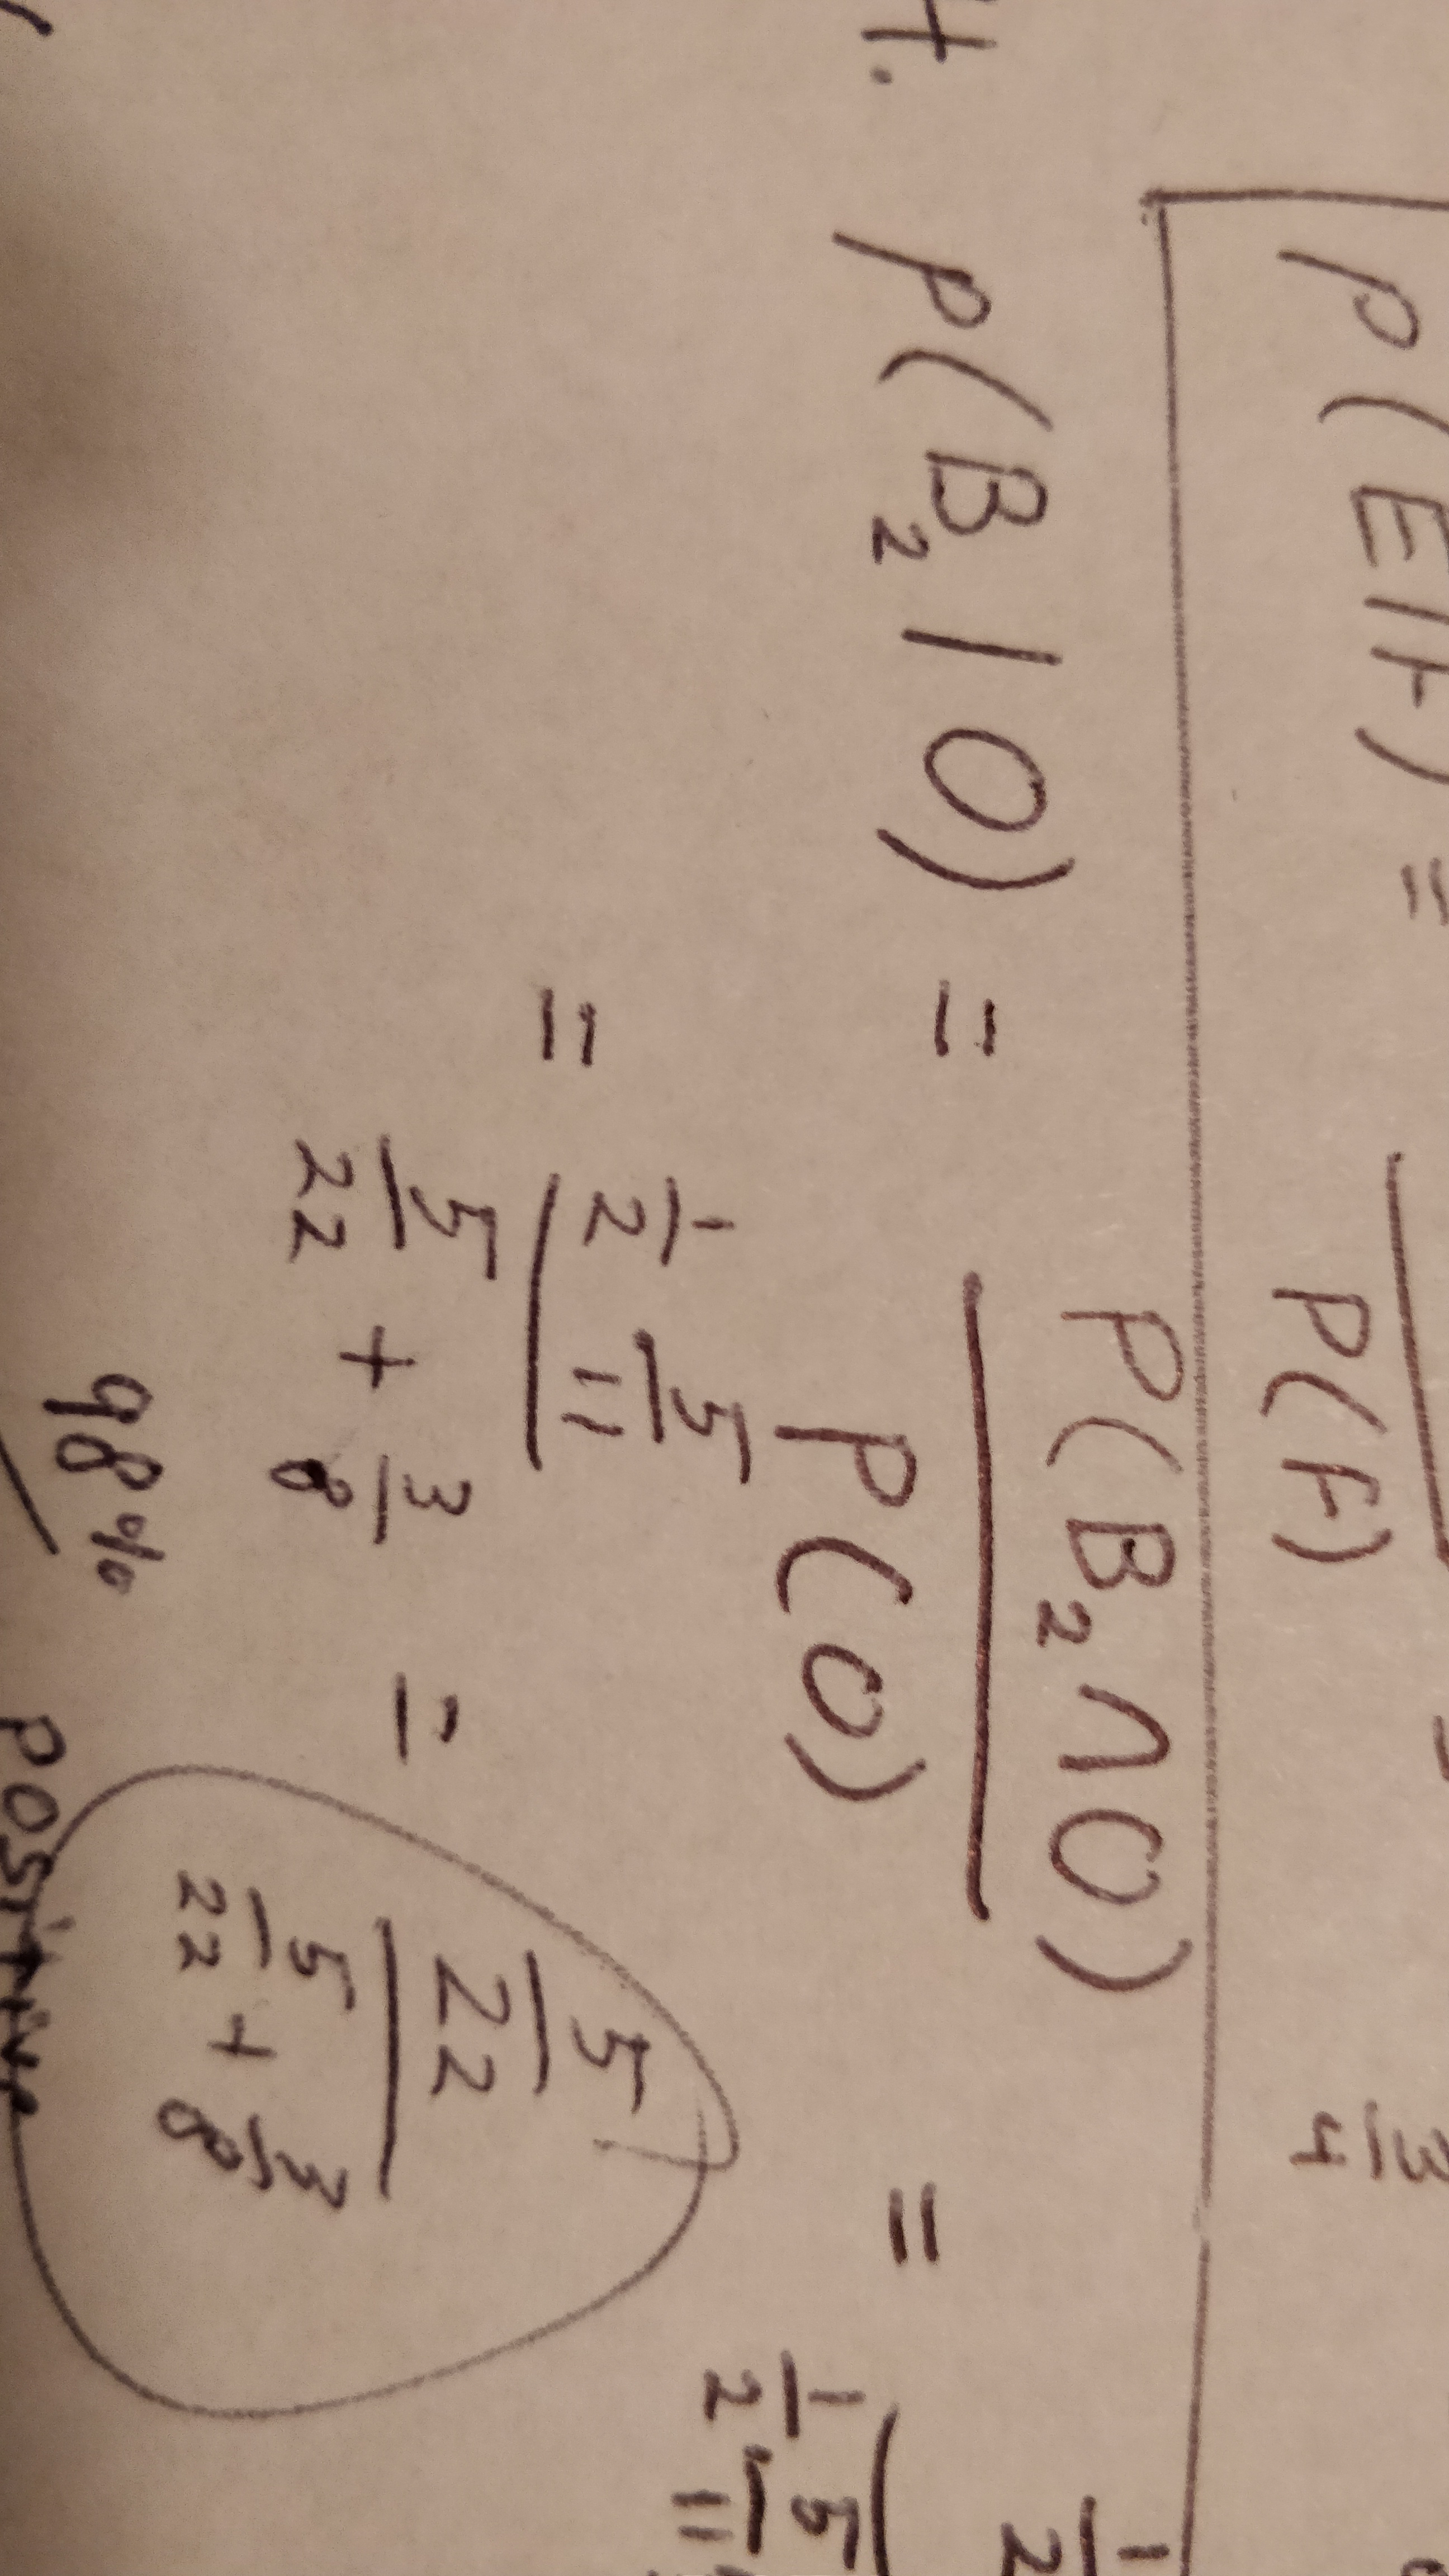 P(E|F) = ─── 3/4
P(F)
4. P(B₂|O) = P(B₂∩O) / P(O) = 1/2 / (1/2 · 5/11
= (1/2 · 5/11) / (5/22 + 3/8) = (5/22) / (5/22 + 3/8)
98% positive